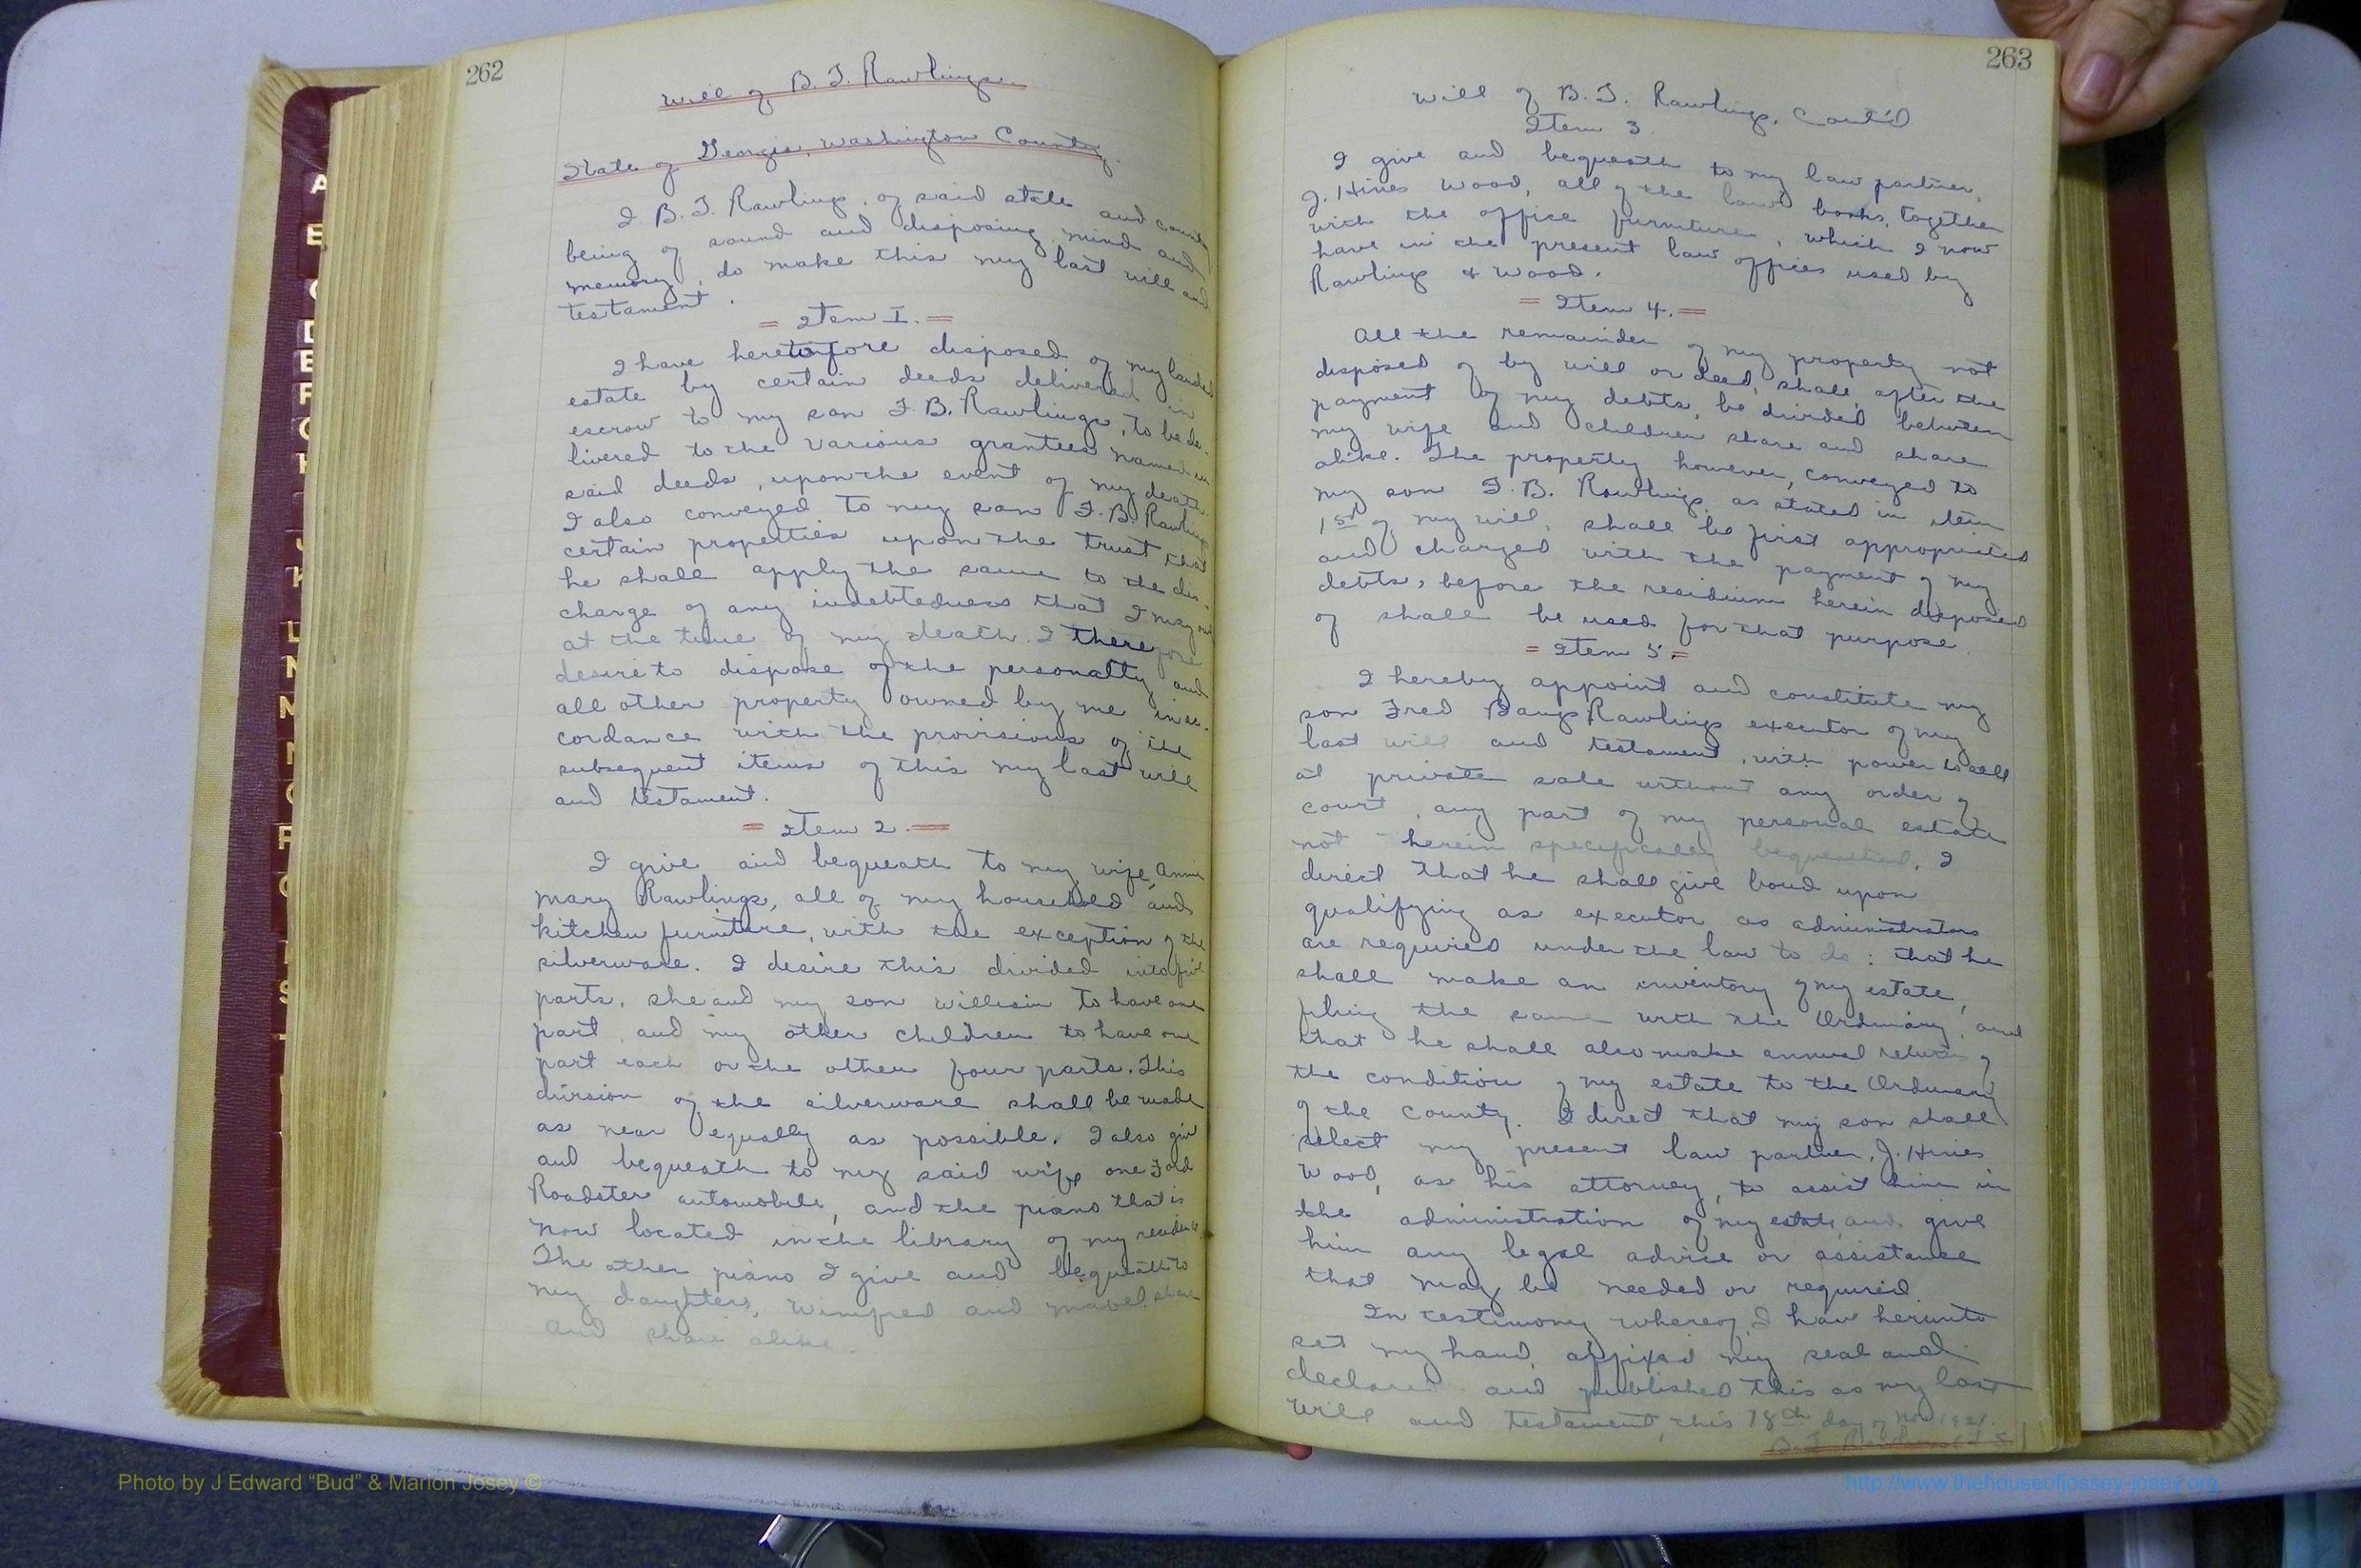 262
Will of B. T. Rawlings.
State of Georgia, Washington County.
I B. T. Rawlings, of said state and county
being of sound and disposing mind and
memory, do make this my last will and
testament.
= Item I. =
I have heretofore disposed of my landed
estate by certain deeds delivered in
escrow to my son F. B. Rawlings, to be de-
livered to the various grantees named in
said deeds, upon the event of my death.
I also conveyed to my son F. B. Rawlings
certain properties upon the trust that
he shall apply the same to the dis-
charge of any indebtedness that I may owe
at the time of my death. I therefore
desire to dispose of the personalty and
all other property owned by me in ac-
cordance with the provisions of the
subsequent items of this my last will
and testament.
= Item 2. =
I give and bequeath to my wife, Annie
Mary Rawlings, all of my household and
kitchen furniture, with the exception of the
silverware. I desire this divided into five
parts, she and my son William to have one
part, and my other children to have one
part each or the other four parts. This
division of the silverware shall be made
as near equally as possible. I also give
and bequeath to my said wife one Ford
Roadster automobile, and the piano that is
now located in the library of my residence.
The other piano I give and bequeath to
my daughters, Winifred and Mabel, share
and share alike.
263
Will of B. T. Rawlings, Cont'd
Item 3.
I give and bequeath to my law partner,
J. Hines Wood, all of the law books, together
with the office furniture, which I now
have in the present law offices used by
Rawlings & Wood.
= Item 4. =
All the remainder of my property not
disposed of by will or deed, shall, after the
payment of my debts, be divided between
my wife and children share and share
alike. The property however, conveyed to
my son F. B. Rawlings, as stated in item
1st of my will, shall be first appropriated
and charged with the payment of my
debts, before the residium herein disposed
of shall be used for that purpose.
= Item 5. =
I hereby appoint and constitute my
son Fred Bangs Rawlings executor of my
last will and testament, with power to sell
at private sale without any order of
court, any part of my personal estate
not herein specifically bequeathed. I
direct that he shall give bond upon
qualifying as executor as administrators
are required under the law to do: that he
shall make an inventory of my estate,
filing the same with the Ordinary, and
that he shall also make annual returns of
the condition of my estate to the Ordinary
of the County. I direct that my son shall
select my present law partner, J. Hines
Wood, as his attorney, to assist him in
the administration of my estate and give
him any legal advice or assistance
that may be needed or required.
In testimony whereof, I have herunto
set my hand, affixed my seal and
declared and published this as my last
will and testament, this 18th day of Nov. 1921.
B. T. Rawlings (L.S.)
Photo by J Edward “Bud” & Marion Josey ©
http://www.thehouseofjossey-josey.org